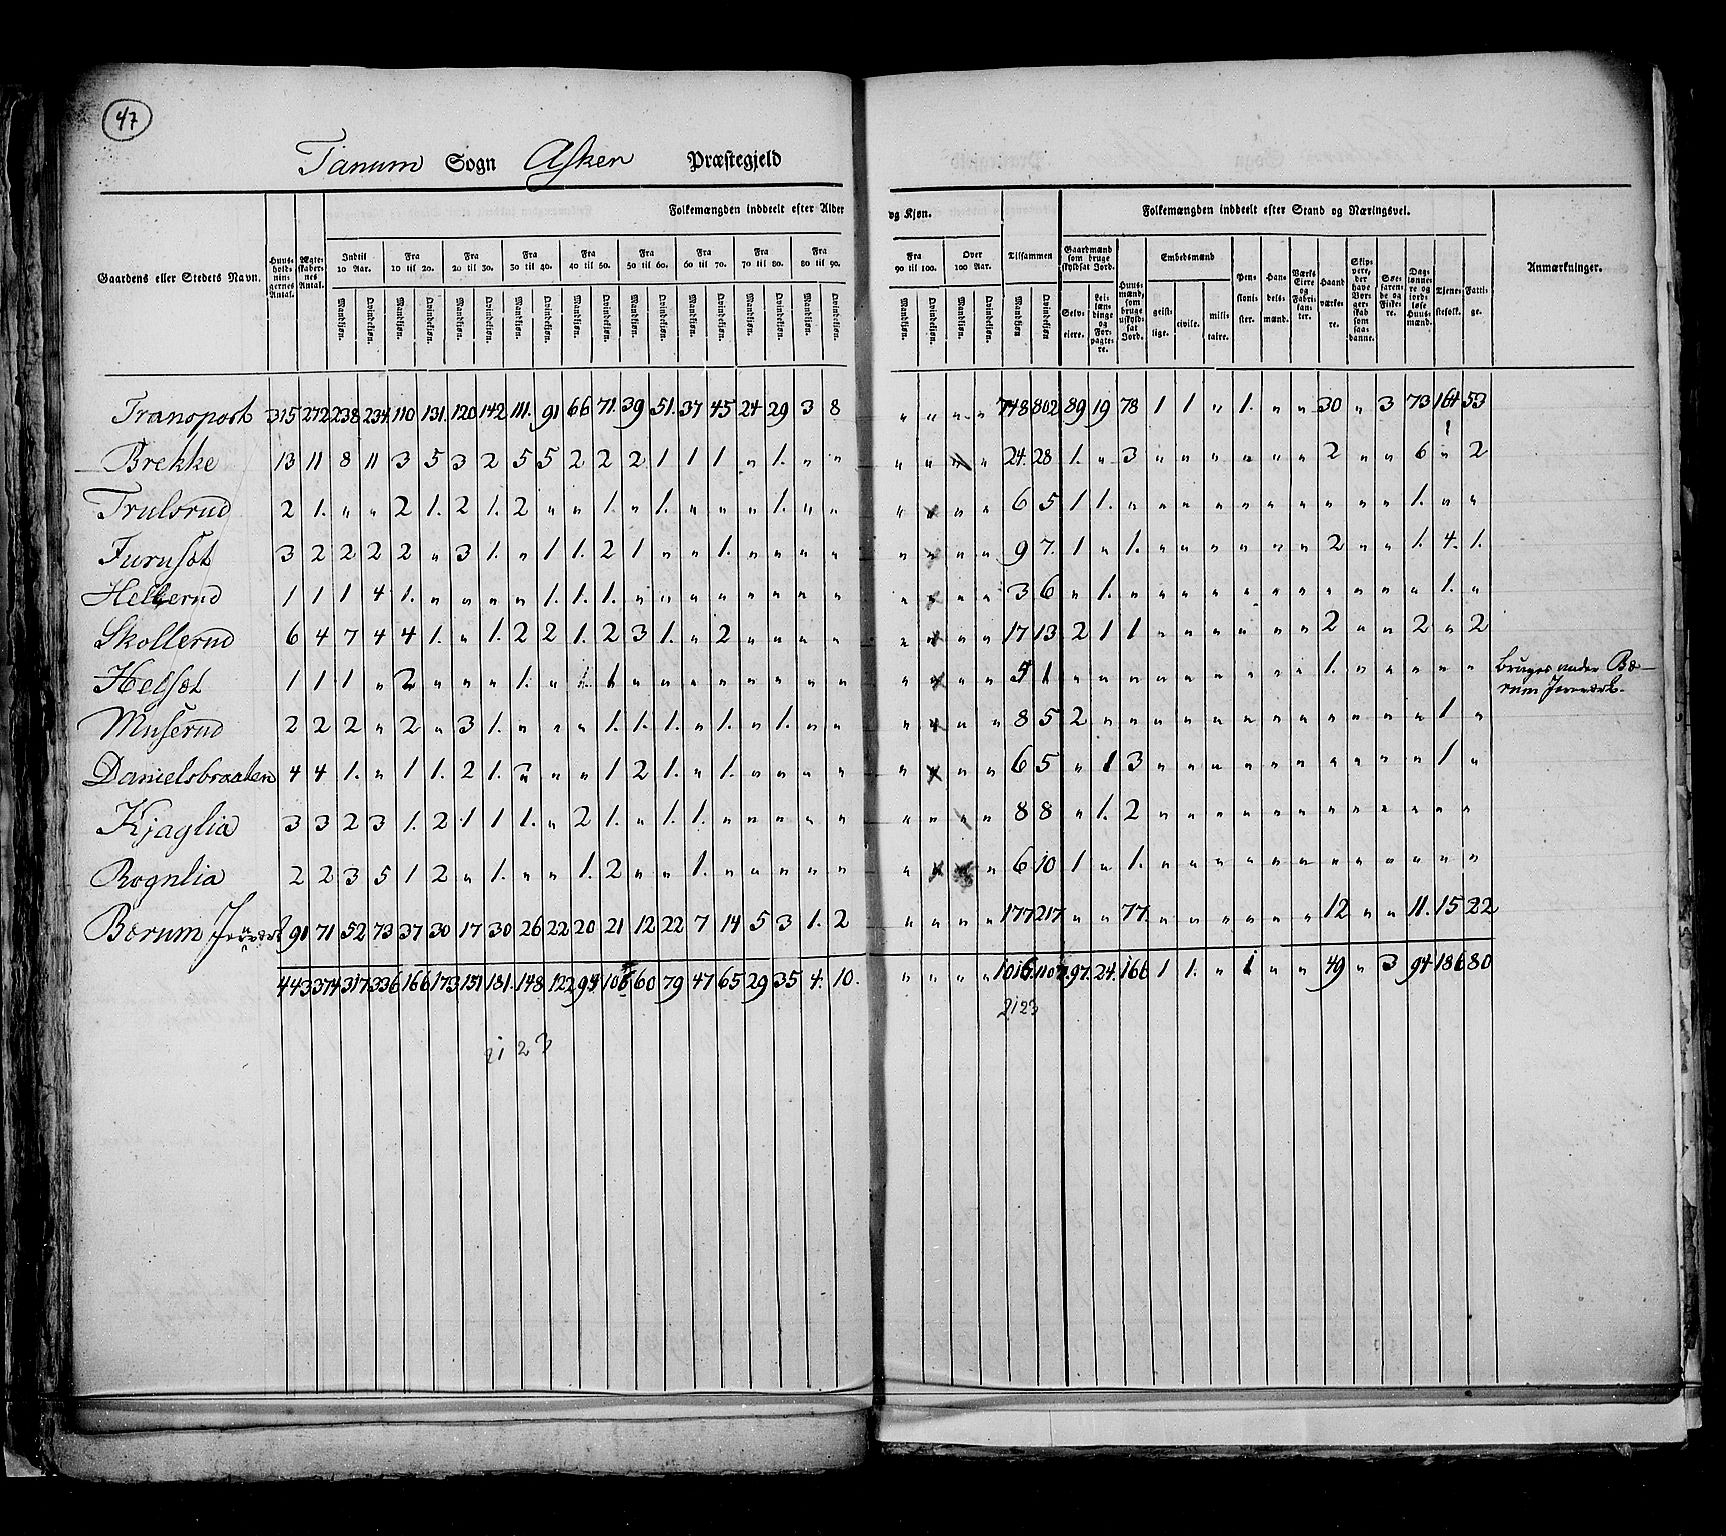 47
Tanum Sogn Asker Præstegjeld
Folkemængden inddeelt efter Alder og Kjøn. Folkemængden inddeelt efter Stand og Næringsvei.
Gaardens eller Stedets Navn. Huusholdningernes Antal. Ægteskabernes Antal. Indtil 10 Aar. Fra 10 til 20. Fra 20 til 30. Fra 30 til 40. Fra 40 til 50. Fra 50 til 60. Fra 60 til 70. Fra 70 til 80. Fra 80 til 90. Fra 90 til 100. Over 100 Aar. Tilsammen Gaardmænd som bruge skyldsat Jord. Huusmænd, som bruge uskyldsat Jord. Embedsmænd Pensionister. Handelsmænd. Værks Eiere og Fabrikanter. Haandværkere. Skippere, der have Borgerskab som saadanne. Søefarende og Fiskere. Daglønnere og jordløse Huusmænd. Tjenestefolk. Fattige. Anmærkninger.
Mandkjøn. Qvindekjøn. Mandkjøn. Qvindekjøn. Mandkjøn. Qvindekjøn. Mandkjøn. Qvindekjøn. Mandkjøn. Qvindekjøn. Mandkjøn. Qvindekjøn. Mandkjøn. Qvindekjøn. Mandkjøn. Qvindekjøn. Mandkjøn. Qvindekjøn. Mandkjøn. Qvindekjøn. Mandkjøn. Qvindekjøn. Mandkjøn Qvindekjøn. Selveiere. Leilændinge og Forpagtere. geistlige. civile. militaire.
Transport 315 272 238 234 110 131. 120 142 111. 91 66 71. 39 51. 37 45 24 29 3 8 " " " " 748 802 89 19 78 1 1 " 1. " " 30 " 3 73 164 53
Brekke 13 11 8 11 3 5 3 2 5 5 2 2 2 1 1 1 " 1. " " " " " " 24. 28 1. " 3 " " " " " " 2 " " 6 " 2
Trulsrud 2 1. " " 2 1. 2 1. 2 " " 1. " 1. " " " 1. " " " " " " 6 5 1 1. " " " " " " " " " " 1. " "
Furuset 3 2 2 2 2 " 3 1. " 1 1. 2 1 " " 1. " " " " " " " " 9 7. 1 " 1. " " " " " " 2 " " 1. 4. 1.
Hellerud 1 1 1 4 1. " " " " 1. 1. 1. " " " " " " " " " " " " 3 6 " 1. " " " " " " " " " " " 1. "
Skollerud 6 4 7 4 4 1. " 1. 2 2 1. 2 3 1. " 2 " " " " " " " " 17 13 2 1 1 " " " " " " 2 " " 2 " 2
Helset 1 1 1 " 2 " " " 1. " 1 1 " " " " " " " " " " " " 1 " " " " " " " " " 1. " " " " " Bruges under Bærum Jernværk.
Muserud 2 2 2 " 2 " 3 1. " " " 1. 1. 1. " 1. " 1. " " " " " " 8 5 2 " " " " " " " " " " " " 1 "
Danielsbraaten 4 4 1. " 1 1. 2 1. " " 1 2 1. " 1. " " " " " " " " 6 5 " 1 3 " " " " " " " " " " 1 "
Kjaglia 3 3 2 3 1. 2 1 1 1. " 2 1. " 1. 1. " " " " " " " " " 8 8 " 1. 2 " " " " " " " " " " " "
Rognlia 2 2 3 5 1 2 " 1. " " 1. 2 " " 1. " " " " " " " " " 6 10 1 " 1. " " " " " " " " " " " "
Bærum Jernværk 91 71 52 73 37 30 17 30 26 22 20 21 12 22 7 14 5 3 1. 2 " " " " 177 217 " " 77 " " " " " " 12 " " 11. 15 22
443 374 317 336 166 173 151 181. 148 122 94 106 60 79 47 65 29 35 4. 10. " " " " 1016 1107 97. 24. 166 1 1. " 1 " " 49 " 3 94 186 80
2123
2123